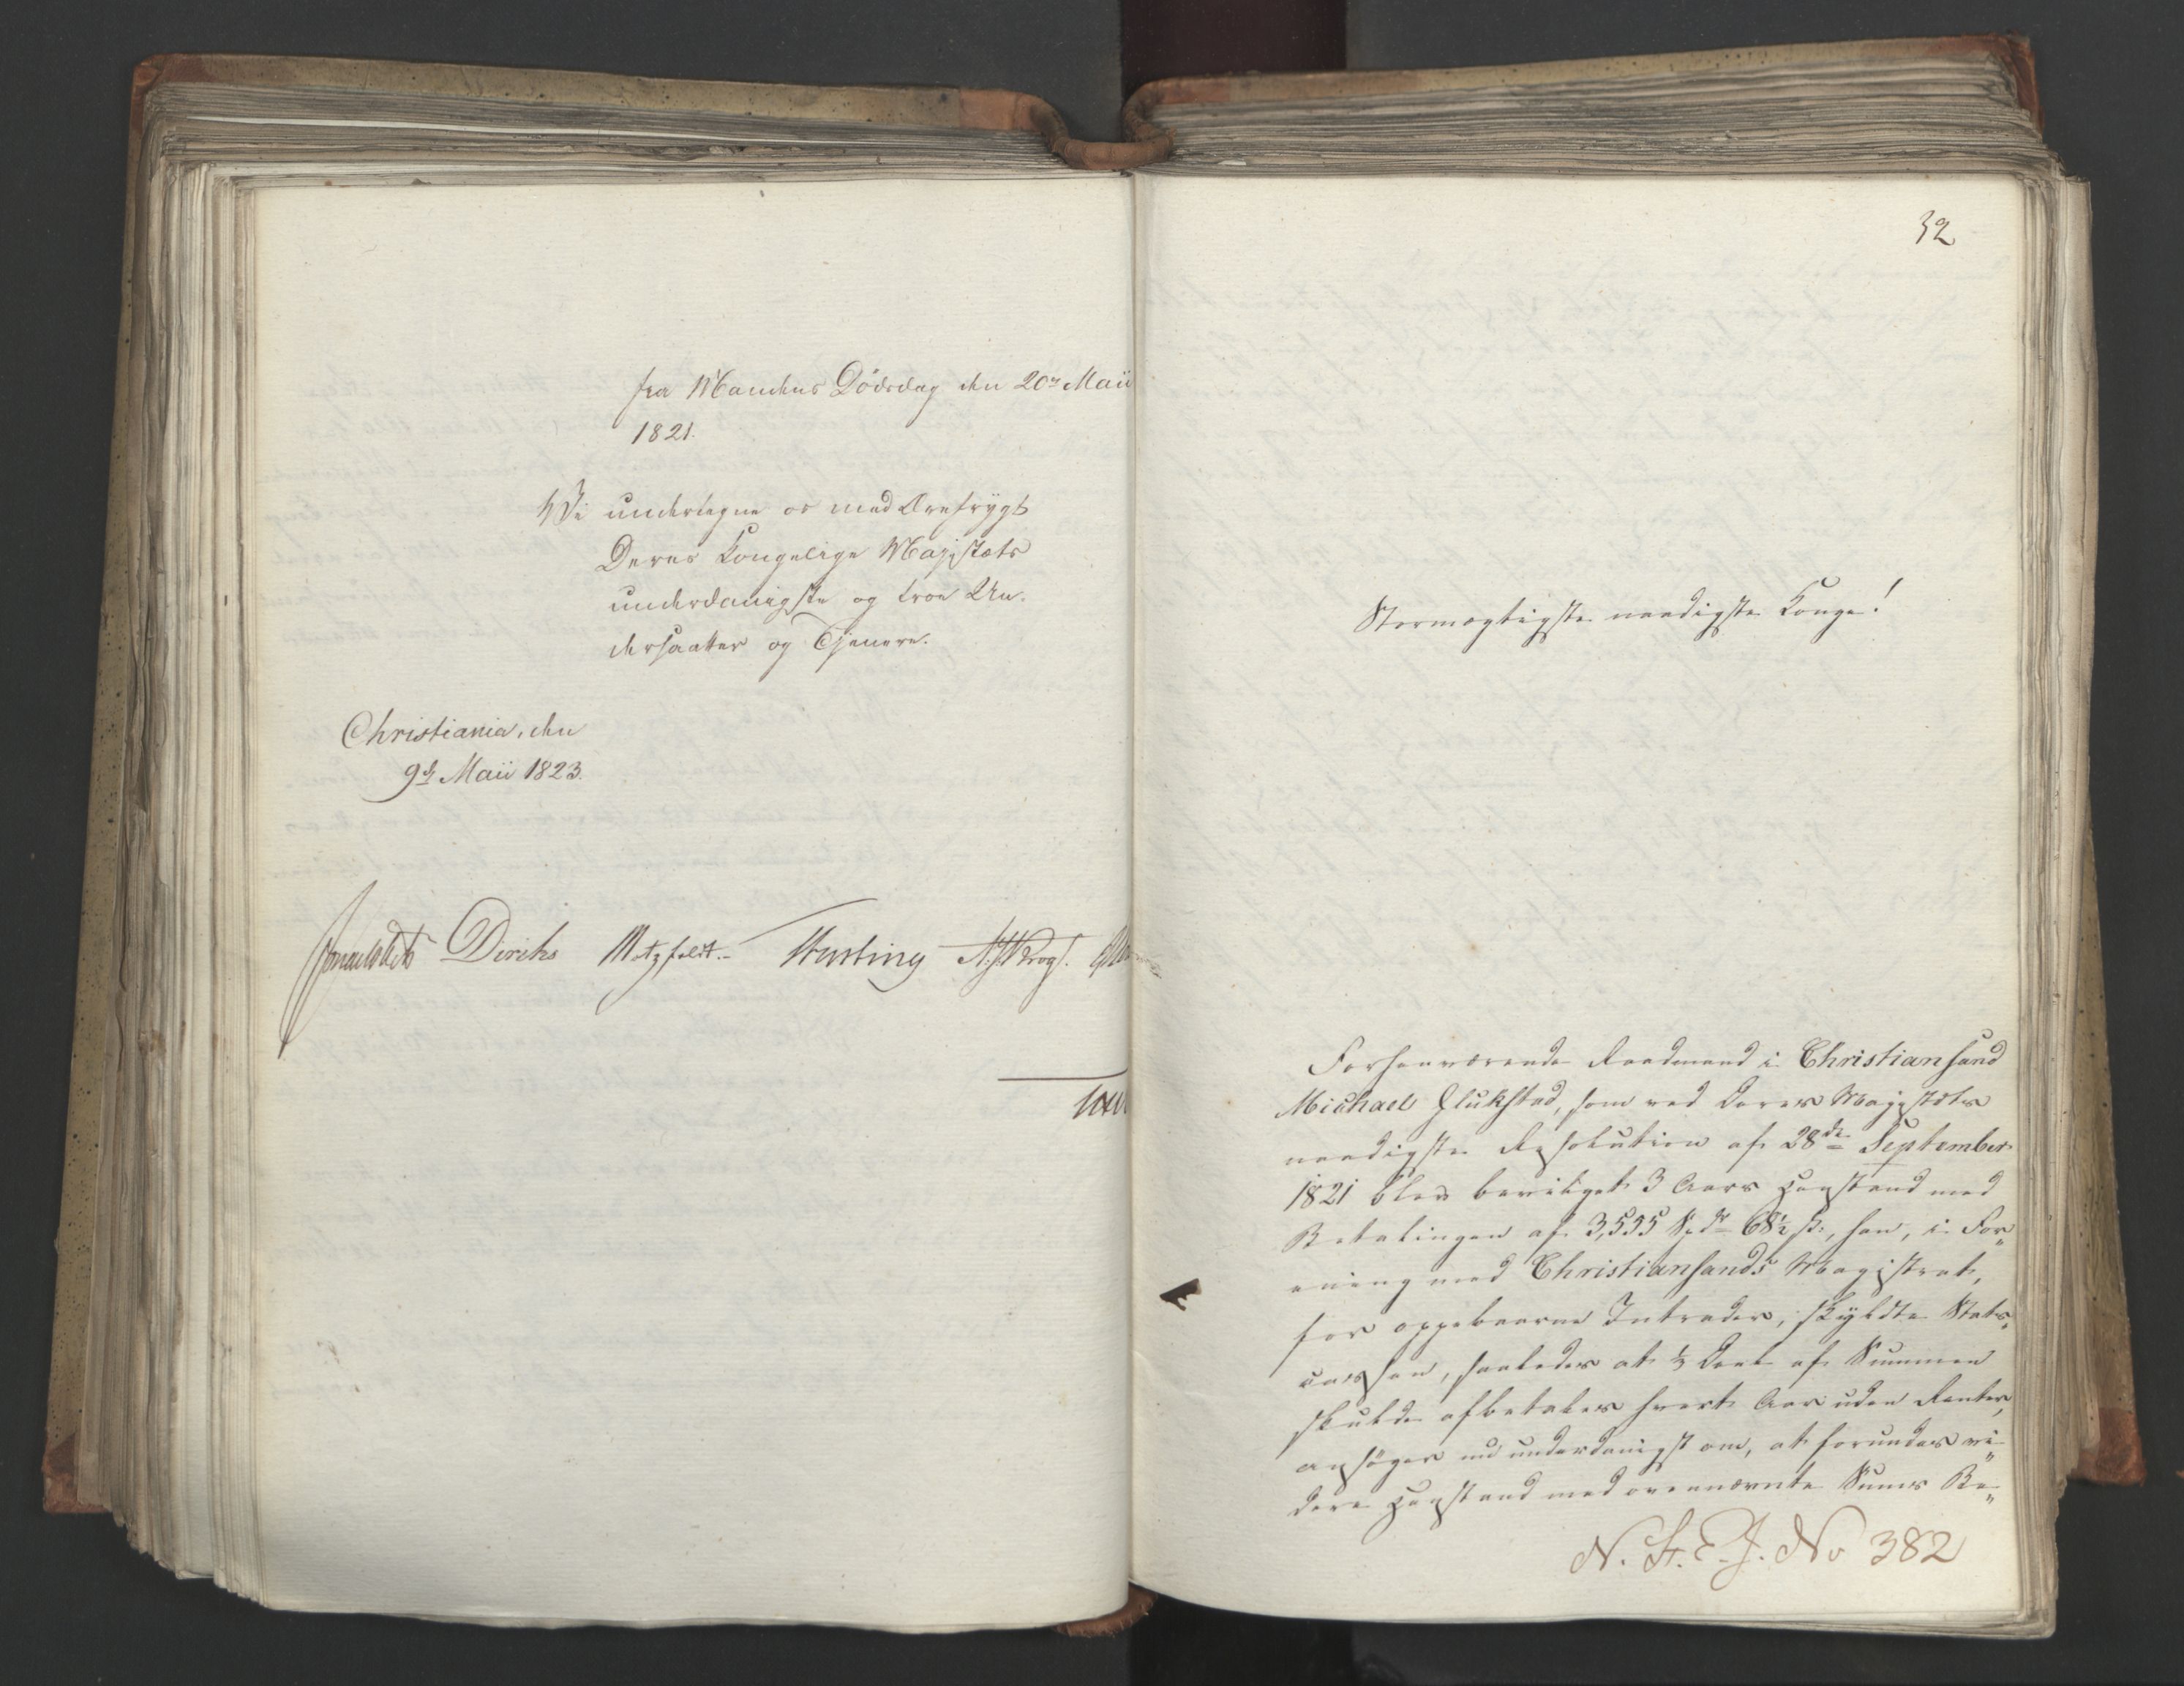 fra Mandens Dödsdag den 20de Maii
1821.
Vi undertegne os med Ærefrygt
Deres Kongelige Majestæts
underdanigste og troe Un-
dersaatter og Tjenere.
Christiania, den
9de Maii 1823.
Diriks Motzfeldt. Hersting Krog.
32
Stormægtigste naadigste Konge!
Forhenværende Raadmand i Christiansand
Michael Glukstad, som ved Deres Majestæts
naadigste Resolution af 28de September
1821 blev bevilget 3 Aars Henstand med
Betalingen af 3,535 Spdr 68½ s:, han, i For„
ening med Christiansands Magistrat,
for oppebaarne Intrader, skyldte Stats„
cassen, saaledes at ⅓ Deel af Summen
skulde afbetales hvert Aar uden Renter,
ansöger nu underdanigst om, at forundes vi„
dere Henstand med ovennævnte Sums Be„
N. St. E. J. No 382